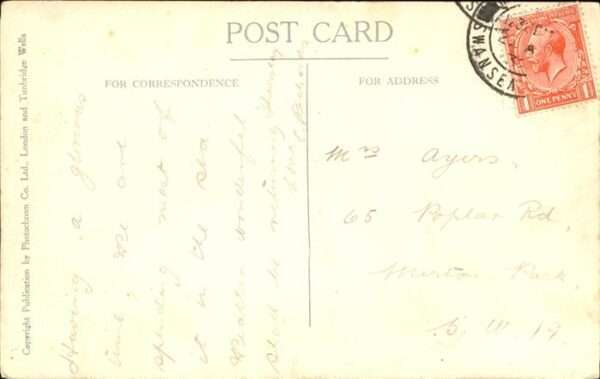 POST CARD
FOR CORRESPONDENCE
FOR ADDRESS
Copyright Publication by Photochrom Co. Ltd., London and Tunbridge Wells
SWANSEA
ONE PENNY
Having a glorious
time. We are
spending most of
it in the sea
Weather wonderful
Shall be returning
Love
Mrs Ayers.
65 Poplar Rd,
Merton Park.
S. W. 19